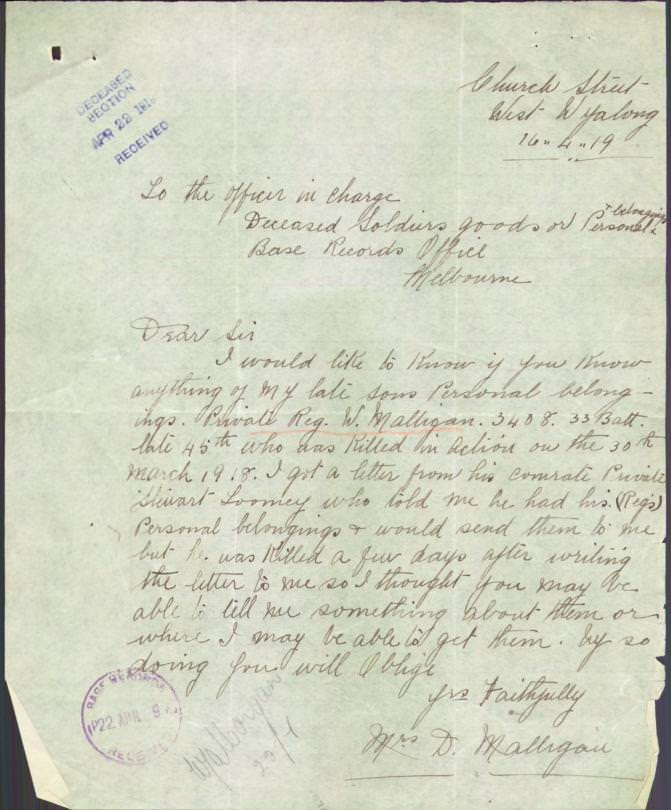 DECEASED
SECTION
APR 22 191
RECEIVED
Church Street
West Wyalong
16" 4" 19
To the officer in charge
Deceased Soldiers goods or Personal + belongings
Base Records Office
Melbourne
Dear Sir
I would like to Know if you Know
anything of my late sons Personal belong-
ings. Private Reg. W. Malligan. 3408. 33 Batt.
late 45th who was Killed in Action on the 30th
March 1918. I got a letter from his comrate Private
Stuart Loomey who told me he had his (Reg's)
Personal belongings + would send them to me
but he was Killed a few days after writing
the letter to me so I thought you may be
able to till me something about them or
where I may be able to get them. by so
doing you will Oblige
yrs Faithfully
Mrs D. Malligan
BASE RECORDS
22 APR 9
RECEIVED